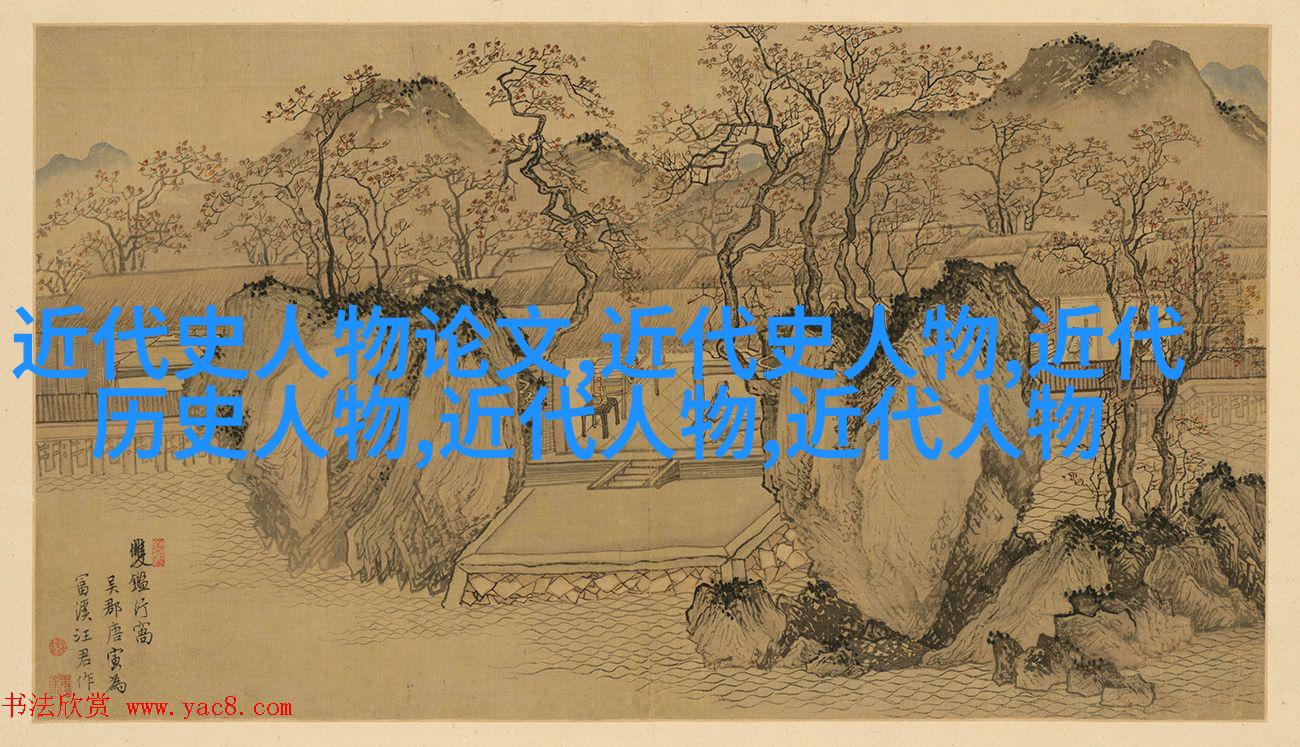 近代史人物论文,近代史人物,近代
历史人物,近代人物,近代人物
雙鑑行窩
吴郡唐寅為
富溪汪君作
书法欣赏 www.yac8.com